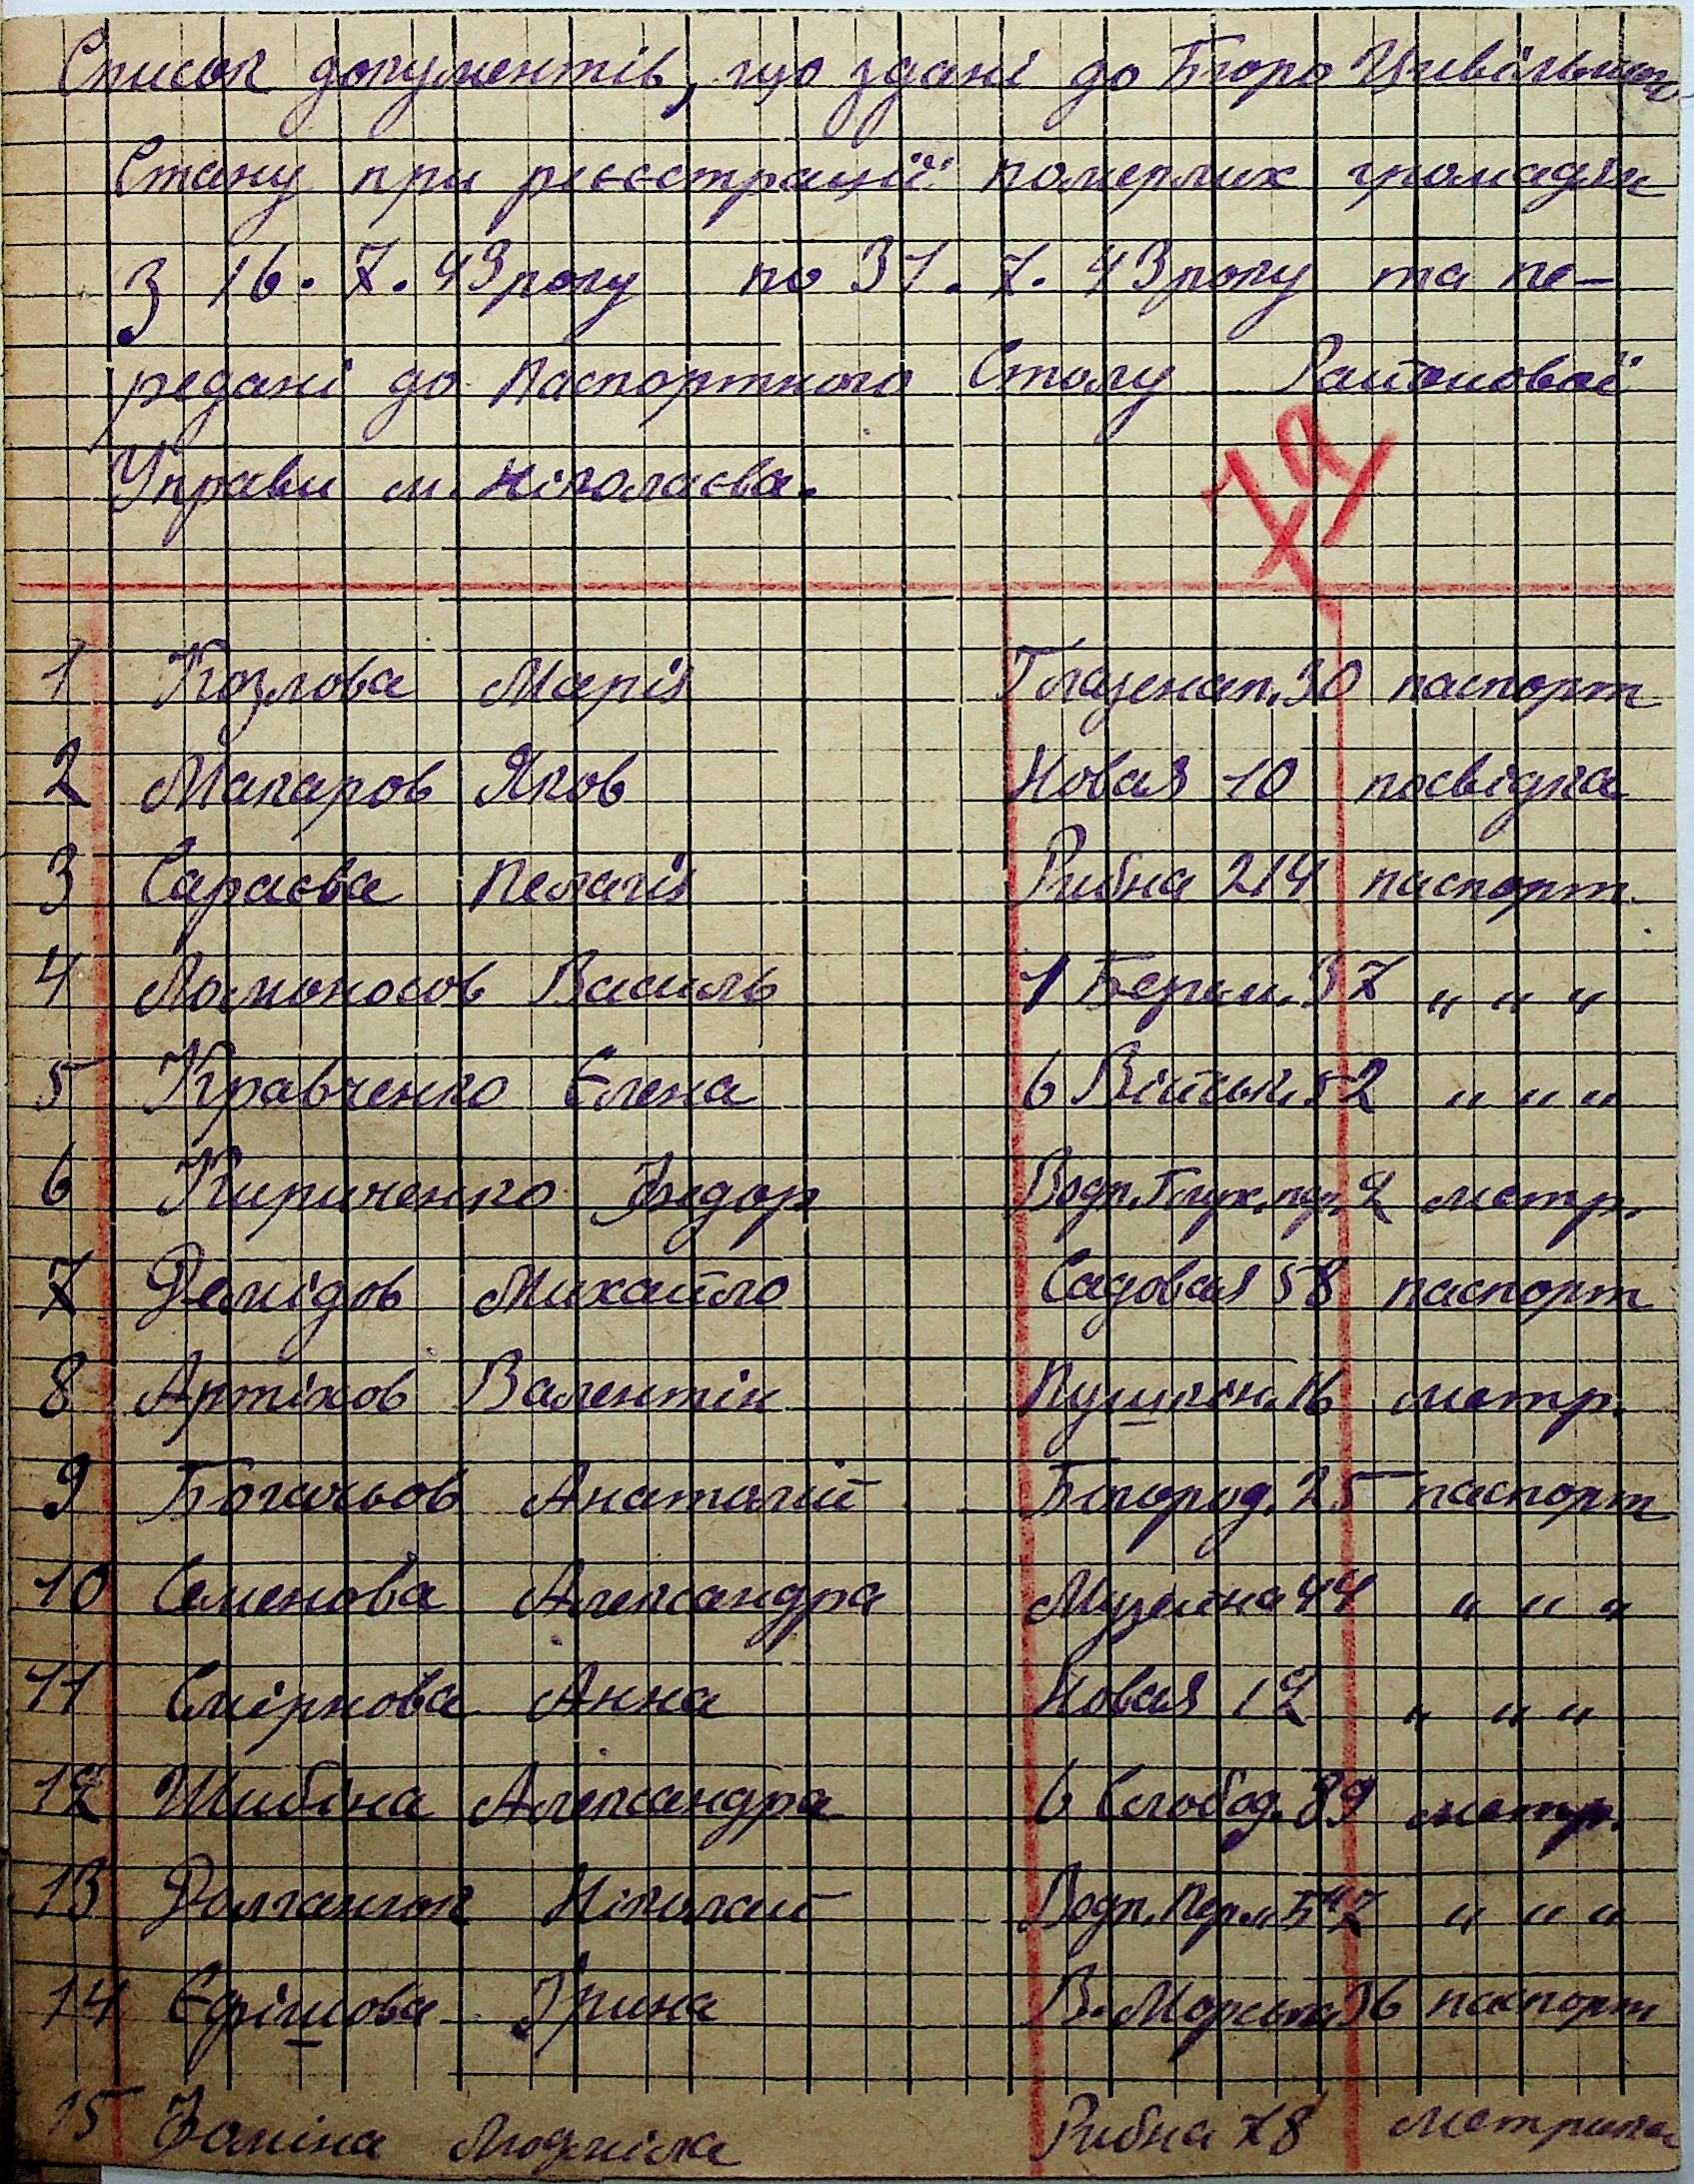 Список документів, що здані до Бюро Цивільного
Стану при реєстрації померлих громадян
З 16. 7. 43 року по 31. 7. 43 року та пе-
редані до Паспортного Столу Районової
Управи м. Ніколаєва.
79
1 Козлова Марія Глазенап. 30 паспорт
2 Макаров Яков Новая 10 посвідка
3 Сараєва Пелагія Рибна 214 паспорт
4 Ломоносов Василь 1 Берем. 37 „ „ „
5 Кравченко Єлена 6 Військ. 52 „ „ „
6 Кириченко Федор Водп. 2 метр.
7 Демідов Михайло Садовая 58 паспорт
8 Артіхов Валентін Пушкін. 16 метр.
9 Богачьов Анатолій Богород. 25 паспорт
10 Семенова Александра Музейна 44 „ „ „
11 Смірнова Анна Новая 12 „ „ „
12 Шибіна Александра 6 Слобод. 89 метр.
13 Ніколай Водп. „ „ „
14 Єфімова Ірина В. Морська 36 паспорт
15 Фоміна Людміла Рибна 78 метрика